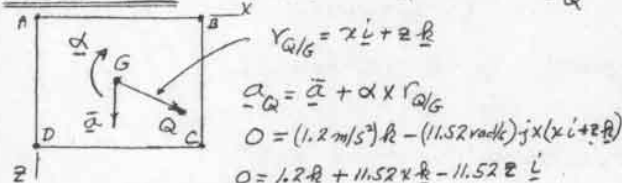 Q
A B x
α G
r_Q/G = x i + z k
ā Q
a_Q = ā + α × r_Q/G
D C
0 = (1.2 m/s²) k - (11.52 rad/s) j × (x i + z k)
z
0 = 1.2 k + 11.52 x k - 11.52 z i